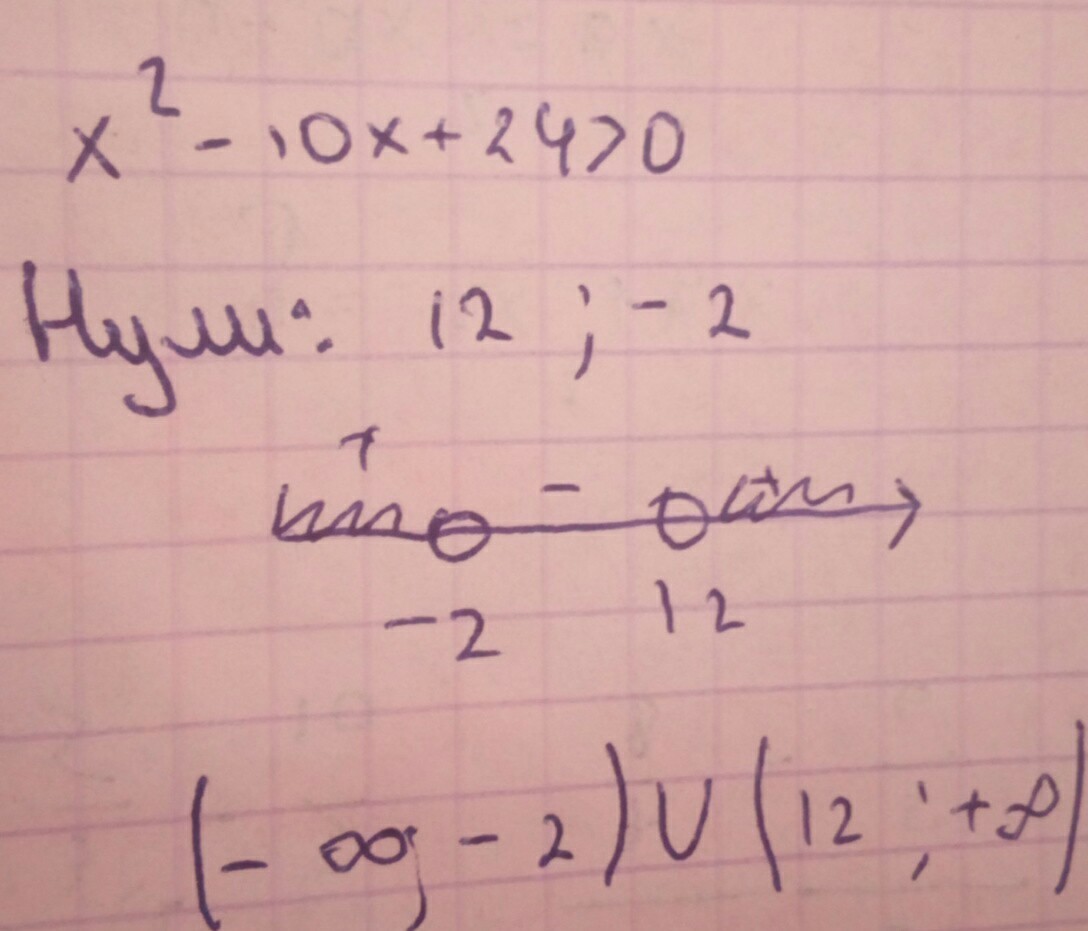 x² - 10x + 24 > 0
Нули: 12 ; - 2
+ - +
-2 12
(- ∞; - 2) ∪ (12 ; + ∞)